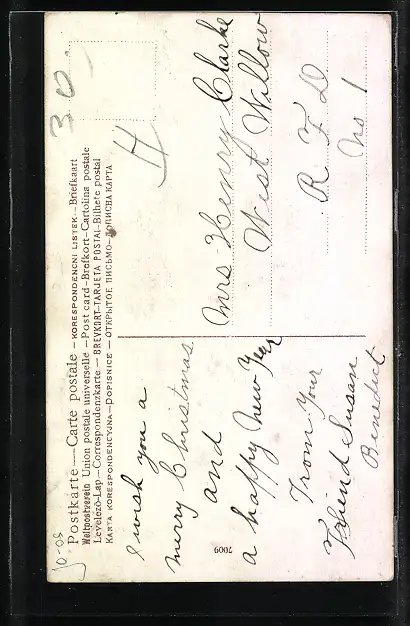 Postkarte — Carte postale – KORESPONDENCNI LISTEK – Briefkaart
Weltpostverein Union postale universelle – Post card – Brefkort – Cartolina postale
Levelező-Lap – Correspondenzkarte – BREVKORT – TARJETA POSTAL – Bilhete postal
KARTA KORESPONDENCYJNA – DOPISNICE – ОТКРЫТОЕ ПИСЬМО – ДОПИСНА КАРТА
30
H
I wish you a
merry Christmas
and
a happy New Year
From Your
Friend Susan
Benedict
Mrs Henry Clarke
West Willow
R F D
No 1
7009